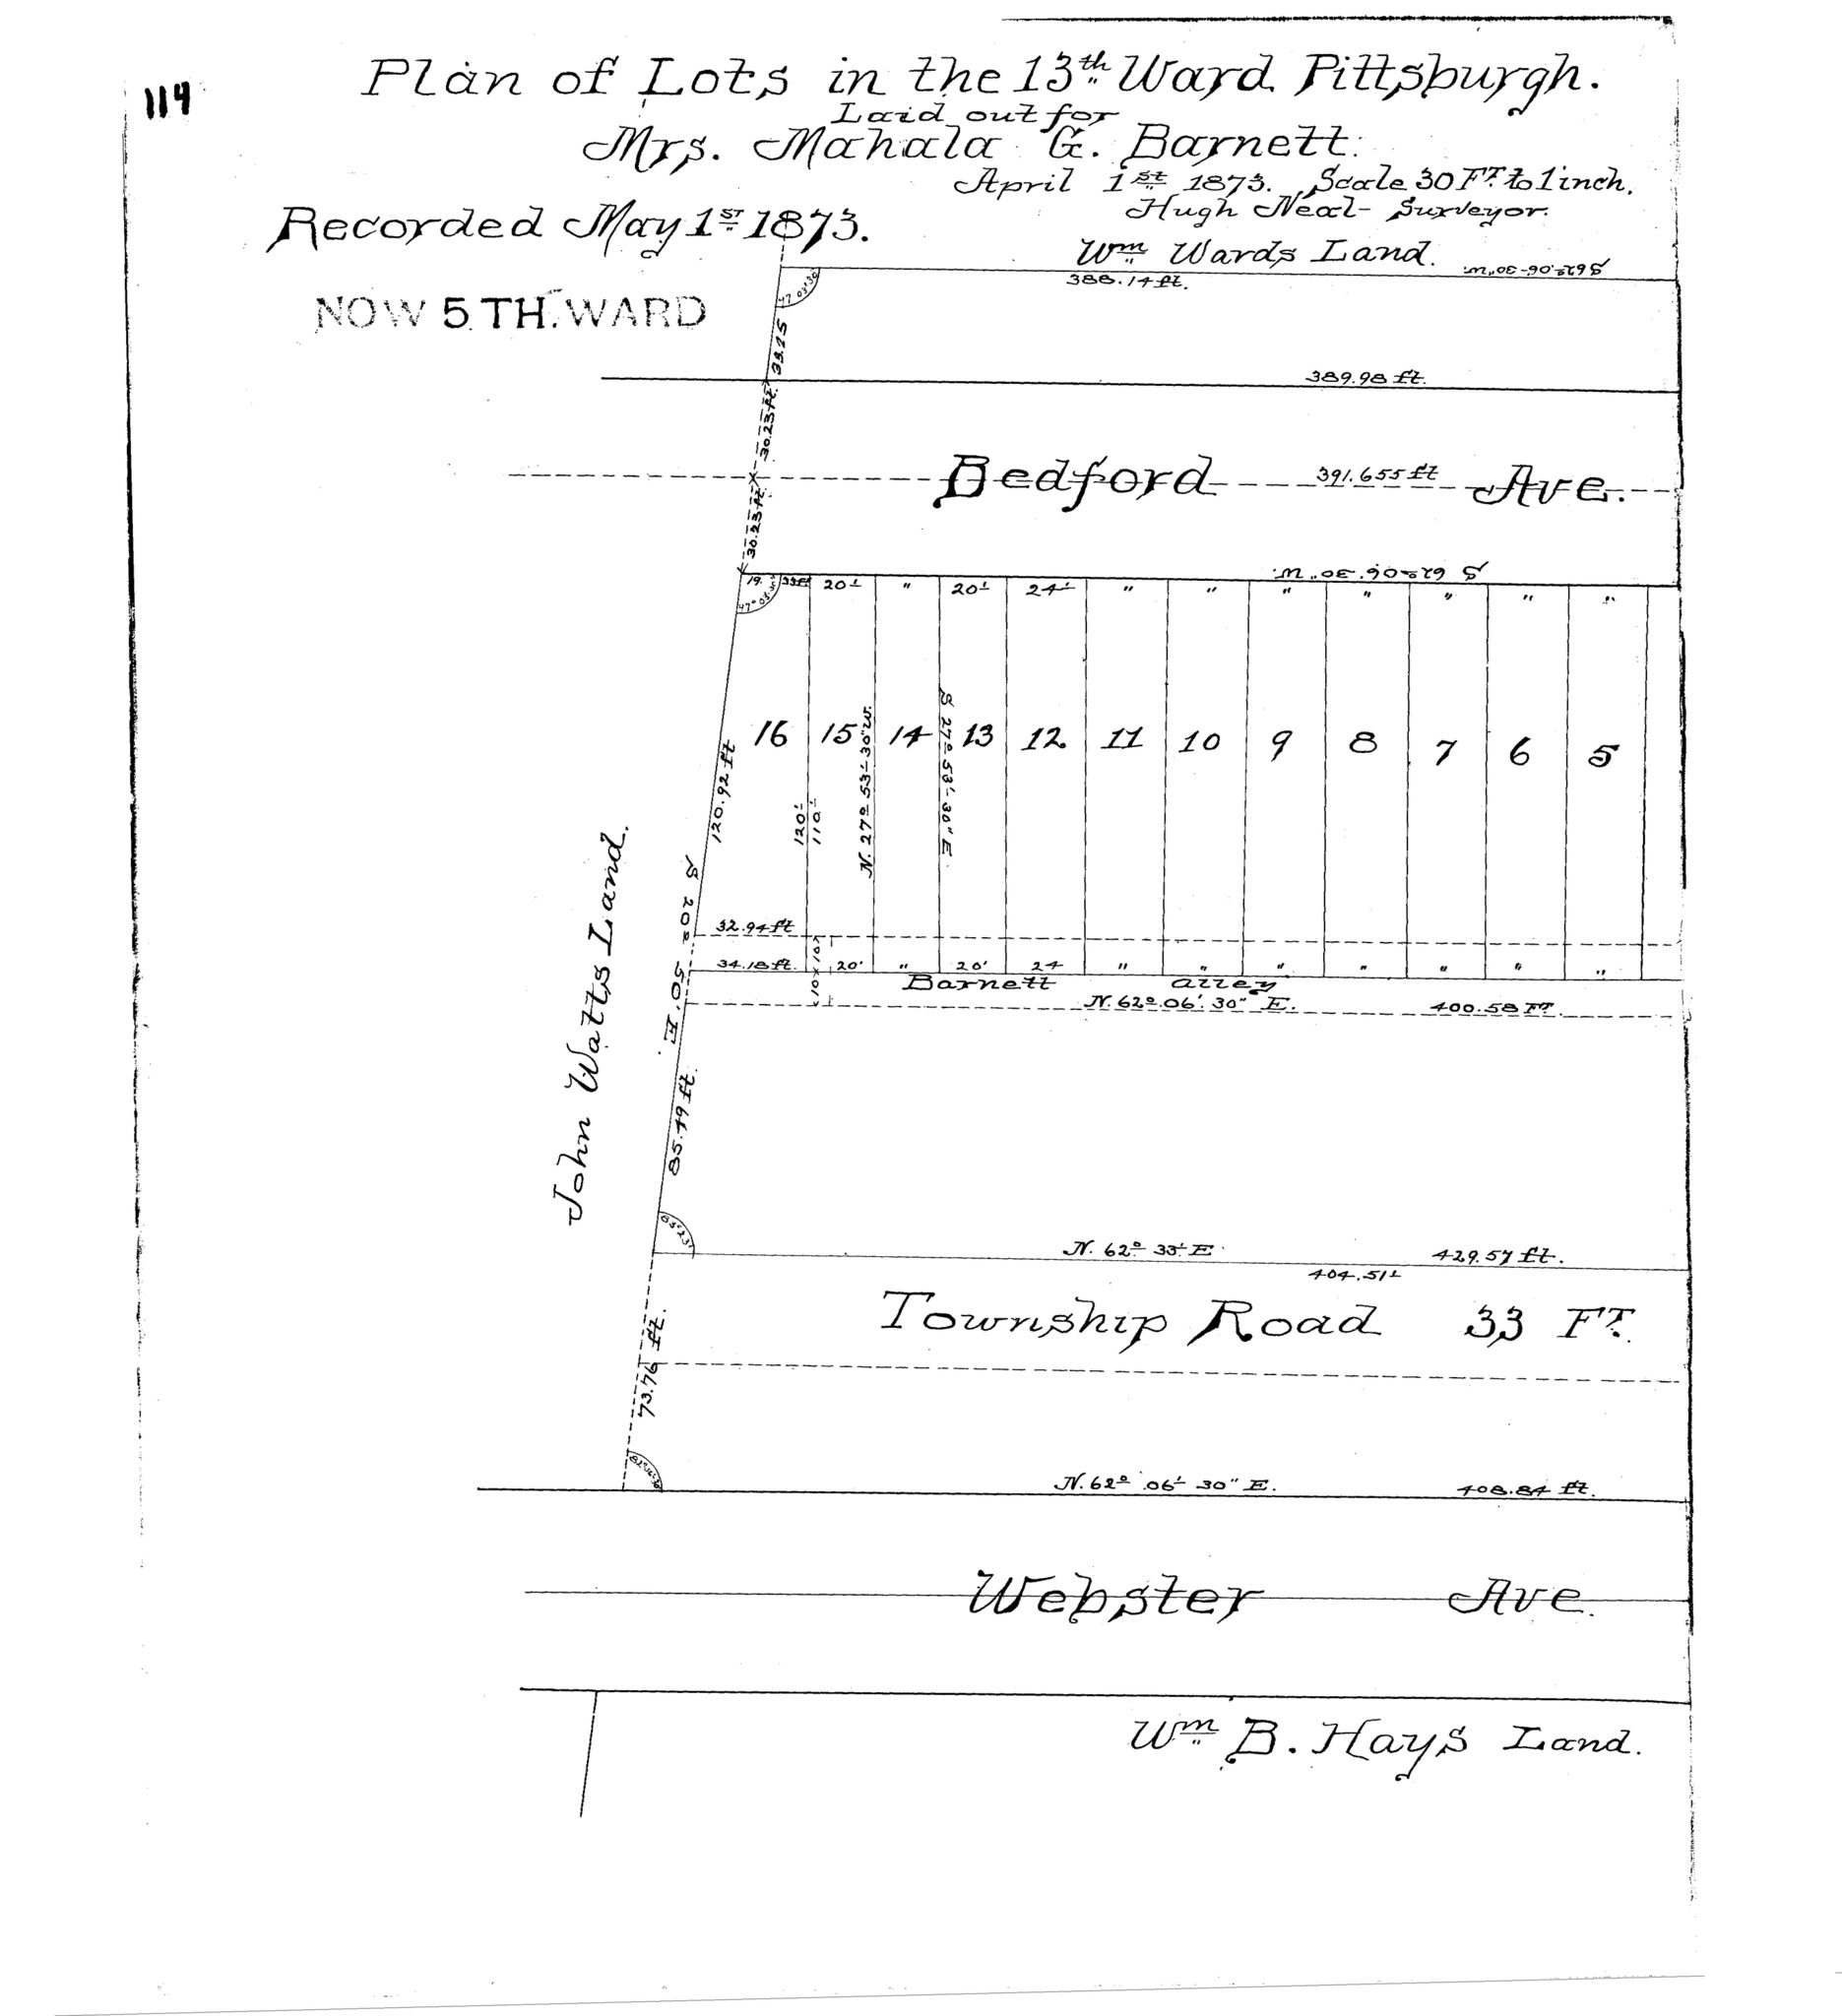 114
Plan of Lots in the 13th Ward Pittsburgh.
Laid out for
Mrs. Mahala G. Barnett.
April 1st 1873. Scale 30 FT. to 1 inch.
Hugh Neal - Surveyor.
Recorded May 1ST 1873.
NOW 5 TH. WARD
Wm Wards Land.
388.14 ft.
S 62° 06' 30" W.
33.15
389.98 ft.
30.23 ft.
Bedford 391.655 ft Ave.
30.23 ft.
S 62° 06' 30" W.
19. 33 ft 20' " 20' 24' " " " " " " "
16 15 14 13 12 11 10 9 8 7 6 5
120.92 ft
120'
110'
N. 27° 53' 30" W.
S 27° 53' 30" E.
John Watts Land.
S 20° 50' E.
32.94 ft
34.18 ft. 10 x 10 20' " 20' 24 " " " " " " "
Barnett alley
N. 62° 06' 30" E. 400.58 FT.
85.49 ft.
83° 23'
N. 62° 33' E 429.57 ft.
404.51'
Township Road 33 FT.
73.76 ft.
N. 62° 06' 30" E. 408.84 ft.
Webster Ave.
Wm B. Hays Land.